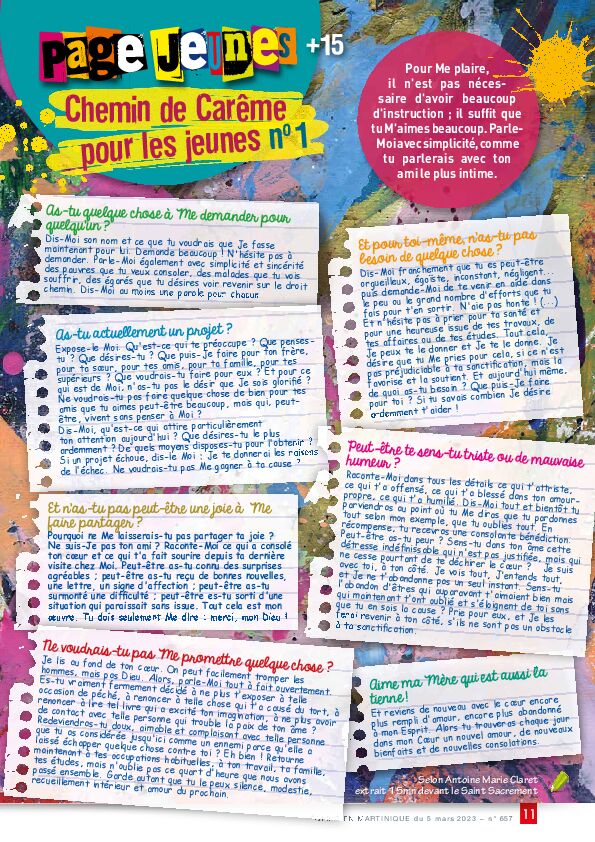 Page Jeunes +15
Chemin de Carême
pour les jeunes n°1
Pour Me plaire,
il n'est pas néces-
saire d'avoir beaucoup
d'instruction ; il suffit que
tu M'aimes beaucoup. Parle-
Moi avec simplicité, comme
tu parlerais avec ton
ami le plus intime.
As-tu quelque chose à Me demander pour
quelqu'un ?
Dis-Moi son nom et ce que tu voudrais que Je fasse
maintenant pour lui. Demande beaucoup ! N'hésite pas à
demander. Parle-Moi également avec simplicité et sincérité
des pauvres que tu veux consoler, des malades que tu vois
souffrir, des égarés que tu désires voir revenir sur le droit
chemin. Dis-Moi au moins une parole pour chacun.
As-tu actuellement un projet ?
Expose-le Moi. Qu'est-ce qui te préoccupe ? Que penses-
tu ? Que désires-tu ? Que puis-Je faire pour ton frère,
pour ta sœur, pour tes amis, pour ta famille, pour tes
supérieurs ? Que voudrais-tu faire pour eux ? Et pour ce
qui est de Moi, n'as-tu pas le désir que Je sois glorifié ?
Ne voudrais-tu pas faire quelque chose de bien pour tes
amis que tu aimes peut-être beaucoup, mais qui, peut-
être, vivent sans penser à Moi ?
Dis-Moi, qu'est-ce qui attire particulièrement
ton attention aujourd'hui ? Que désires-tu le plus
ardemment ? De quels moyens disposes-tu pour l'obtenir ?
Si un projet échoue, dis-le Moi : Je te donnerai les raisons
de l'échec. Ne voudrais-tu pas Me gagner à ta cause ?
Et n'as-tu pas peut-être une joie à Me
faire partager ?
Pourquoi ne Me laisserais-tu pas partager ta joie ?
Ne suis-Je pas ton ami ? Raconte-Moi ce qui a consolé
ton cœur et ce qui t'a fait sourire depuis ta dernière
visite chez Moi. Peut-être as-tu connu des surprises
agréables ; peut-être as-tu reçu de bonnes nouvelles,
une lettre, un signe d'affection ; peut-être as-tu
surmonté une difficulté ; peut-être es-tu sorti d'une
situation qui paraissait sans issue. Tout cela est mon
œuvre. Tu dois seulement Me dire : merci, mon Dieu !
Ne voudrais-tu pas Me promettre quelque chose ?
Je lis au fond de ton cœur. On peut facilement tromper les
hommes, mais pas Dieu. Alors, parle-Moi tout à fait ouvertement.
Es-tu vraiment fermement décidé à ne plus t'exposer à telle
occasion de péché, à renoncer à telle chose qui t'a causé du tort, à
renoncer à lire tel livre qui a excité ton imagination, à ne plus avoir
de contact avec telle personne qui trouble la paix de ton âme ?
Redeviendras-tu doux, aimable et complaisant avec telle personne
que tu as considérée jusqu'ici comme un ennemi parce qu'elle a
laissé échapper quelque chose contre toi ? Eh bien ! Retourne
maintenant à tes occupations habituelles, à ton travail, ta famille,
tes études, mais n'oublie pas ce quart d'heure que nous avons
passé ensemble. Garde autant que tu le peux silence, modestie,
recueillement intérieur et amour du prochain.
Et pour toi-même, n'as-tu pas
besoin de quelque chose ?
Dis-Moi franchement que tu es peut-être
orgueilleux, égoïste, inconstant, négligent...
puis demande-Moi de te venir en aide dans
le peu ou le grand nombre d'efforts que tu
fais pour t'en sortir. N'aie pas honte ! (...)
Et n'hésite pas à prier pour ta santé et
pour une heureuse issue de tes travaux, de
tes affaires ou de tes études. Tout cela,
Je peux te le donner et Je te le donne. Je
désire que tu Me pries pour cela, si ce n'est
pas préjudiciable à ta sanctification, mais la
favorise et la soutient. Et aujourd'hui même,
de quoi as-tu besoin ? Que puis-Je faire
pour toi ? Si tu savais combien Je désire
ardemment t'aider !
Peut-être te sens-tu triste ou de mauvaise
humeur ?
Raconte-Moi dans tous les détails ce qui t'attriste,
ce qui t'a offensé, ce qui t'a blessé dans ton amour-
propre, ce qui t'a humilié. Dis-Moi tout et bientôt tu
parviendras au point où tu Me diras que tu pardonnes
tout selon mon exemple, que tu oublies tout. En
récompense, tu recevras une consolante bénédiction.
Peut-être as-tu peur ? Sens-tu dans ton âme cette
détresse indéfinissable qui n'est pas justifiée, mais qui
ne cesse pourtant de te déchirer le cœur ? Je suis
avec toi, à ton côté. Je vois tout, J'entends tout,
et Je ne t'abandonne pas un seul instant. Sens-tu
l'abandon d'êtres qui auparavant t'aimaient bien mais
qui maintenant t'ont oublié et s'éloignent de toi sans
que tu en sois la cause ? Prie pour eux, et Je les
ferai revenir à ton côté, s'ils ne sont pas un obstacle
à ta sanctification.
Aime ma Mère qui est aussi la
tienne !
Et reviens de nouveau avec le cœur encore
plus rempli d'amour, encore plus abandonné
à mon Esprit. Alors tu trouveras chaque jour
dans mon Cœur un nouvel amour, de nouveaux
bienfaits et de nouvelles consolations.
Selon Antoine Marie Claret
extrait 15mn devant le Saint Sacrement
MARTINIQUE du 5 mars 2023 – n° 657 11